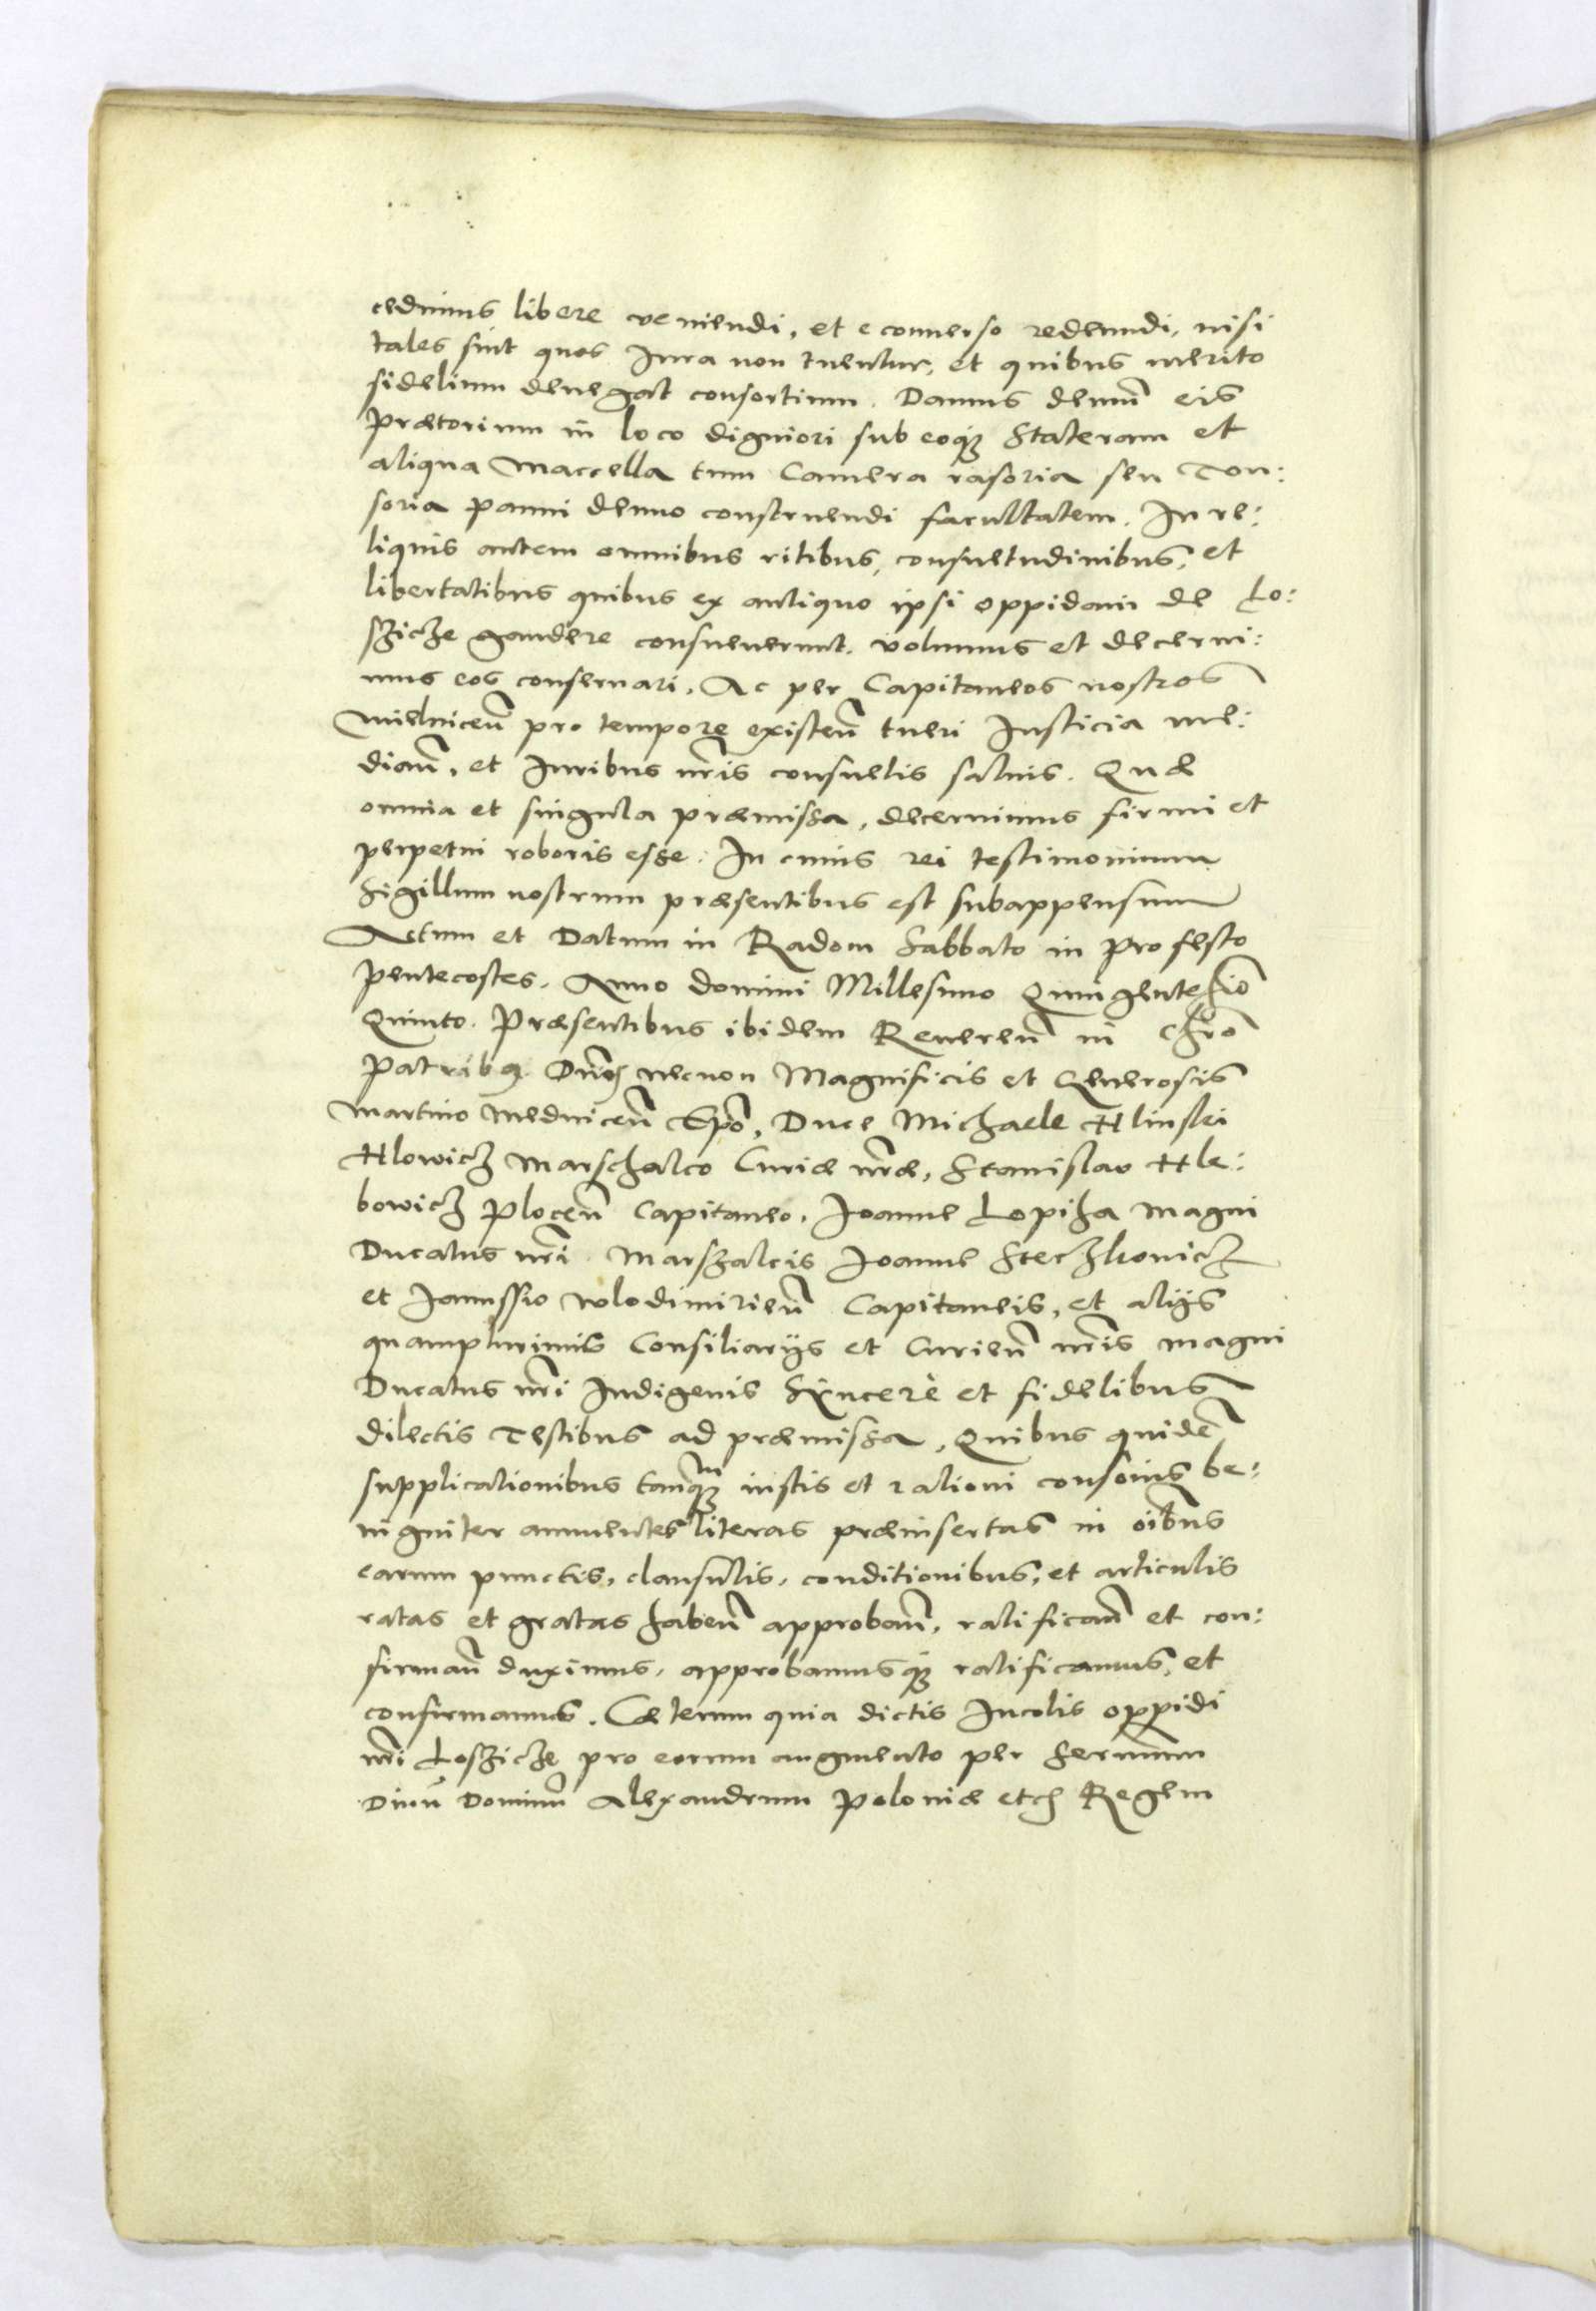 cedimus libere veniendi, et e conuerso redeundi, nisi
tales sint quos Iura non tuentur, et quibus merito
fidelium denegat consortium. Damus demũ eis
Prætorium in loco digniori sub eoq́ꝫ Stateram et
aliqua Maccella tum Camera rasoria seu Ton:
soria panni denuo construendi facultatem. In re:
liquis autem omnibus ritibus, consuetudinibus, et
libertatibus quibus ex antiquo ipsi oppidani de Lo:
szicze gaudere consueuerunt. volumus et decerni:
mus eos conseruari. Ac per Capitaneos nostros
Mielniceñ pro tempore existeñ tueri Iusticia me:
diañ, et Iuribus nr̃is consuetis saluis. Quæ
omnia et singula præmissa, decernimus firmi et
perpetui roboris esse. In cuius rei testimonium
Sigillum nostrum præsentibus est subappensum
Actum et Datum in Radom Sabbato in profesto
Pentecostes. Anno domini Millesimo Quingentesiõ
Quinto. Præsentibus ibidem Reuereñ in Chrõ
Patribꝫ Dñis necnon Magnificis et Generosis
Martino Medniceñ Ep̃o, Duce Michaele Hlinski
Hlowicz Marschalco Curiæ nr̃æ, Stanislao Hle:
bowicz Ploceñ Capitaneo, Joanne Sopiha Magni
Ducatus nr̃i Marszalcis Joanne Steczkowicz
et Janussio Wlodimirieñ Capitaneis, et alijs
quampluribus Consiliarijs et Curieñ nr̃is Magni
Ducatus nr̃i Indigenis Syncerè et fidelibus
dilectis Testibus ad præmissa, Quibus quidẽ
supplicationibus tanq̃ꝫ iustis et rationi consonis be:
nigniter annuentes literas præinsertas in oĩbus
earum punctis, clausulis, conditionibus, et articulis
ratas et gratas habeñ approbañ, ratificañ et con:
firmañ duximus, approbamusq́ꝫ ratificamus, et
confirmamus. Cæterum quia dictis Incolis oppidi
nr̃i Loszicze pro eorum augmento per Sermũm
Diuũ Dominũ Alexandrum Poloniæ etc Regem